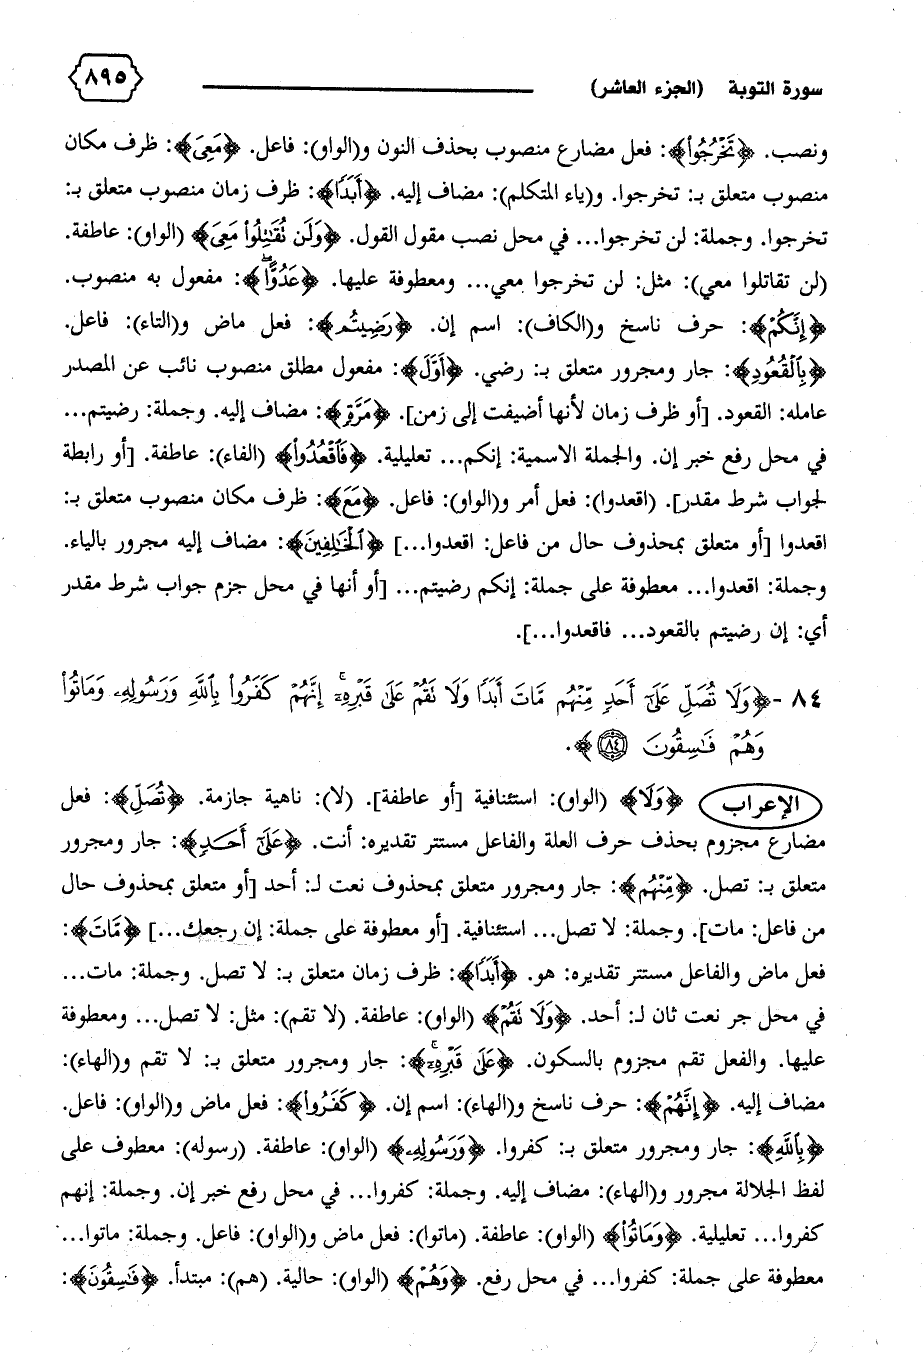 سورة التوبة (الجزء العاشر) ٨٩٥
ونصب. ﴿تَخْرُجُواْ﴾: فعل مضارع منصوب بحذف النون و(الواو): فاعل. ﴿مَعِىَ﴾: ظرف مكان
منصوب متعلق بـ: تخرجوا. و(ياء المتكلم): مضاف إليه. ﴿أَبَدًا﴾: ظرف زمان منصوب متعلق بـ:
تخرجوا. وجملة: لن تخرجوا... في محل نصب مقول القول. ﴿وَلَن تُقَٰتِلُواْ مَعِىَ﴾ (الواو): عاطفة.
(لن تقاتلوا معي): مثل: لن تخرجوا معي... ومعطوفة عليها. ﴿عَدُوًّاۖ﴾: مفعول به منصوب.
﴿إِنَّكُمْ﴾: حرف ناسخ و(الكاف): اسم إن. ﴿رَضِيتُم﴾: فعل ماض و(التاء): فاعل.
﴿بِٱلْقُعُودِ﴾: جار ومجرور متعلق بـ: رضي. ﴿أَوَّلَ﴾: مفعول مطلق منصوب نائب عن المصدر
عامله: القعود. [أو ظرف زمان لأنها أضيفت إلى زمن]. ﴿مَرَّةٍ﴾: مضاف إليه. وجملة: رضيتم...
في محل رفع خبر إن. والجملة الاسمية: إنكم... تعليلية. ﴿فَٱقْعُدُواْ﴾ (الفاء): عاطفة. [أو رابطة
لجواب شرط مقدر]. (اقعدوا): فعل أمر و(الواو): فاعل. ﴿مَعَ﴾: ظرف مكان منصوب متعلق بـ:
اقعدوا [أو متعلق بمحذوف حال من فاعل: اقعدوا...] ﴿ٱلْخَٰلِفِينَ﴾: مضاف إليه مجرور بالياء.
وجملة: اقعدوا... معطوفة على جملة: إنكم رضيتم... [أو أنها في محل جزم جواب شرط مقدر
أي: إن رضيتم بالقعود... فاقعدوا...].
٨٤ - ﴿وَلَا تُصَلِّ عَلَىٰٓ أَحَدٍ مِّنْهُم مَّاتَ أَبَدًا وَلَا تَقُمْ عَلَىٰ قَبْرِهِۦٓۚ إِنَّهُمْ كَفَرُواْ بِٱللَّهِ وَرَسُولِهِۦ وَمَاتُواْ
وَهُمْ فَٰسِقُونَ ٨٤﴾.
الإعراب ﴿وَلَا﴾ (الواو): استئنافية [أو عاطفة]. (لا): ناهية جازمة. ﴿تُصَلِّ﴾: فعل
مضارع مجزوم بحذف حرف العلة والفاعل مستتر تقديره: أنت. ﴿عَلَىٰٓ أَحَدٍ﴾: جار ومجرور
متعلق بـ: تصل. ﴿مِّنْهُم﴾: جار ومجرور متعلق بمحذوف نعت لـ: أحد [أو متعلق بمحذوف حال
من فاعل: مات]. وجملة: لا تصل... استئنافية. [أو معطوفة على جملة: إن رجعك...] ﴿مَّاتَ﴾:
فعل ماض والفاعل مستتر تقديره: هو. ﴿أَبَدًا﴾: ظرف زمان متعلق بـ: لا تصل. وجملة: مات...
في محل جر نعت ثان لـ: أحد. ﴿وَلَا تَقُمْ﴾ (الواو): عاطفة. (لا تقم): مثل: لا تصل... ومعطوفة
عليها. والفعل تقم مجزوم بالسكون. ﴿عَلَىٰ قَبْرِهِۦٓۚ﴾: جار ومجرور متعلق بـ: لا تقم و(الهاء):
مضاف إليه. ﴿إِنَّهُمْ﴾: حرف ناسخ و(الهاء): اسم إن. ﴿كَفَرُواْ﴾: فعل ماض و(الواو): فاعل.
﴿بِٱللَّهِ﴾: جار ومجرور متعلق بـ: كفروا. ﴿وَرَسُولِهِۦ﴾ (الواو): عاطفة. (رسوله): معطوف على
لفظ الجلالة مجرور و(الهاء): مضاف إليه. وجملة: كفروا... في محل رفع خبر إن. وجملة: إنهم
كفروا... تعليلية. ﴿وَمَاتُواْ﴾ (الواو): عاطفة. (ماتوا): فعل ماض و(الواو): فاعل. وجملة: ماتوا...
معطوفة على جملة: كفروا... في محل رفع. ﴿وَهُمْ﴾ (الواو): حالية. (هم): مبتدأ. ﴿فَٰسِقُونَ﴾: